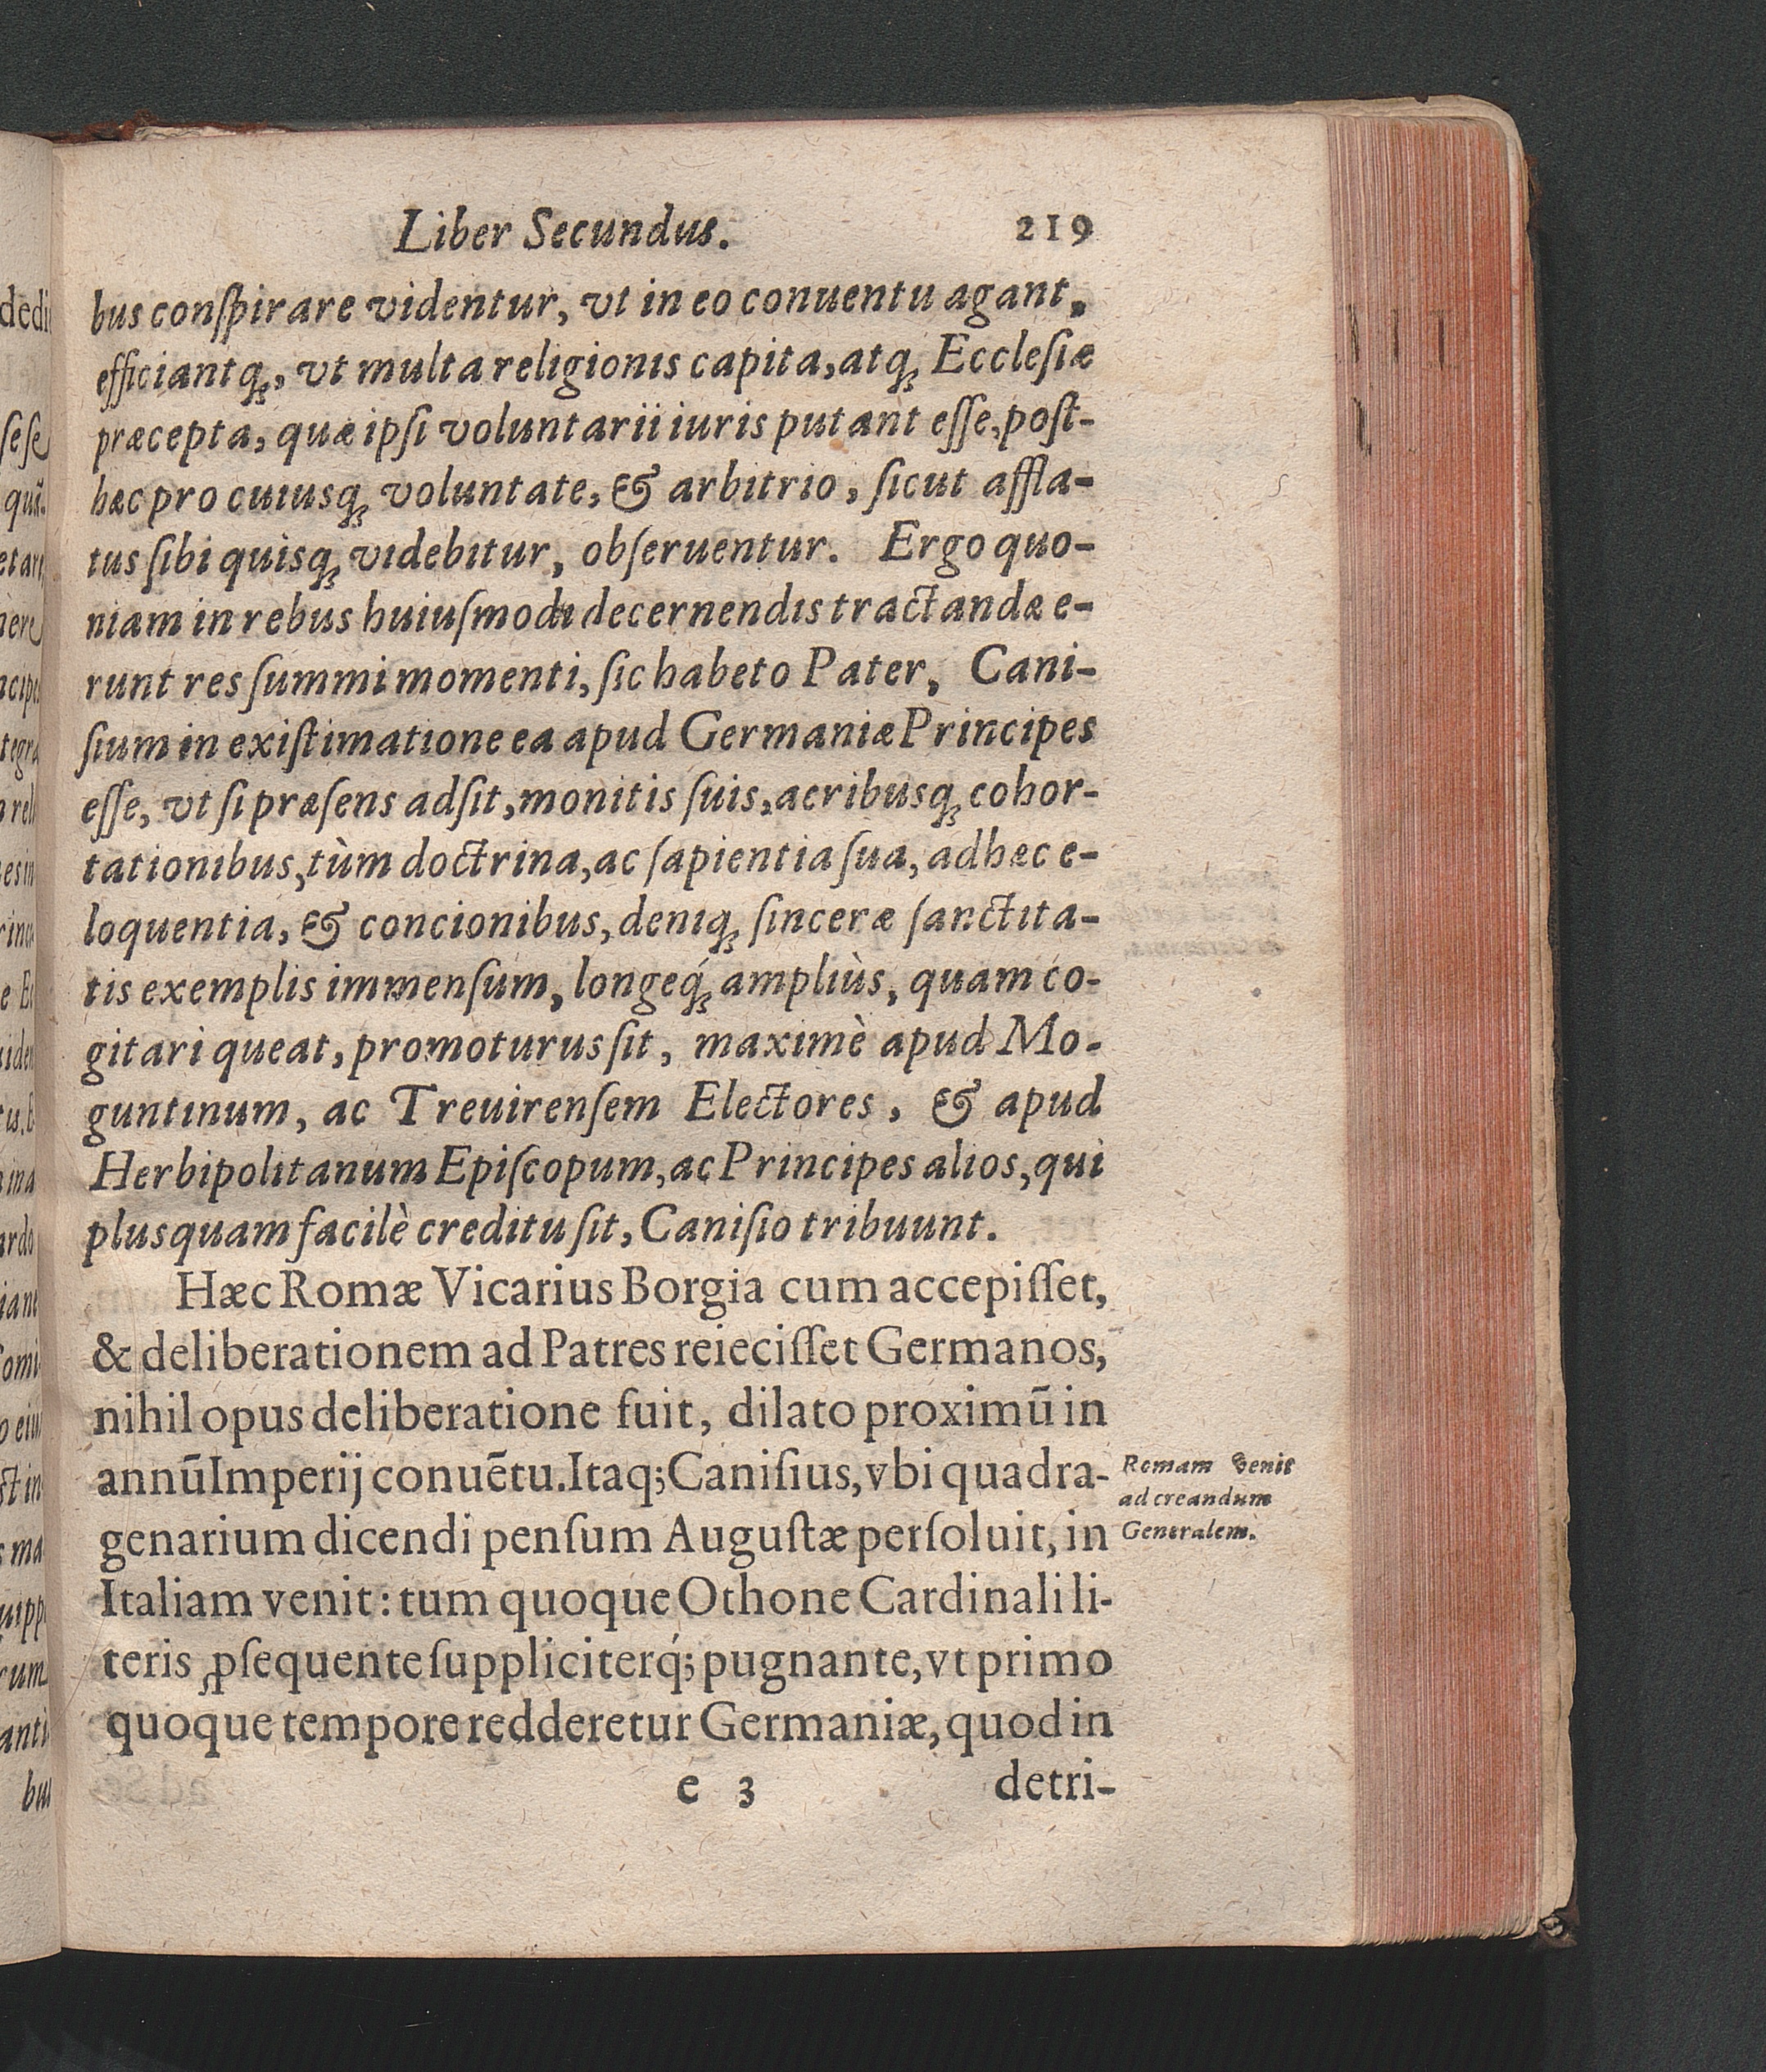 Liber Secundus. 219
bus conſpirare videntur, vt in eo conuentu agant,
efficiantq́;, vt multa religionis capita, atq; Eccleſiæ
præcepta, quæ ipſi voluntarii iuris putant eſſe, poſt-
hæc pro cuiusq; voluntate, & arbitrio, ſicut affla-
tus ſibi quisq; videbitur, obſeruentur. Ergo quo-
niam in rebus huiuſmodi decernendis tractandæ e-
runt res ſummi momenti, ſic habeto Pater, Cani-
ſium in exiſtimatione ea apud Germaniæ Principes
eſſe, vt ſi præſens adſit, monitis ſuis, acribusq; cohor-
tationibus, tùm doctrina, ac ſapientia ſua, adhæc e-
loquentia, & concionibus, deniq; ſinceræ ſanctita-
tis exemplis immenſum, longeq́; ampliùs, quam co-
gitari queat, promoturus ſit, maximè apud Mo-
guntinum, ac Treuirenſem Electores, & apud
Herbipolitanum Epiſcopum, ac Principes alios, qui
plusquam facilè creditu ſit, Caniſio tribuunt.
Hæc Romæ Vicarius Borgia cum accepiſſet,
& deliberationem ad Patres reieciſſet Germanos,
nihil opus deliberatione fuit, dilato proximū in
annū Imperij conuētu. Itaq; Caniſius, vbi quadra-
genarium dicendi penſum Auguſtæ perſoluit, in
Italiam venit: tum quoque Othone Cardinali li-
teris ꝓſequente ſuppliciterq́; pugnante, vt primo
quoque tempore redderetur Germaniæ, quod in
e 3 detri-
Romam venit
ad creandum
Generalem.